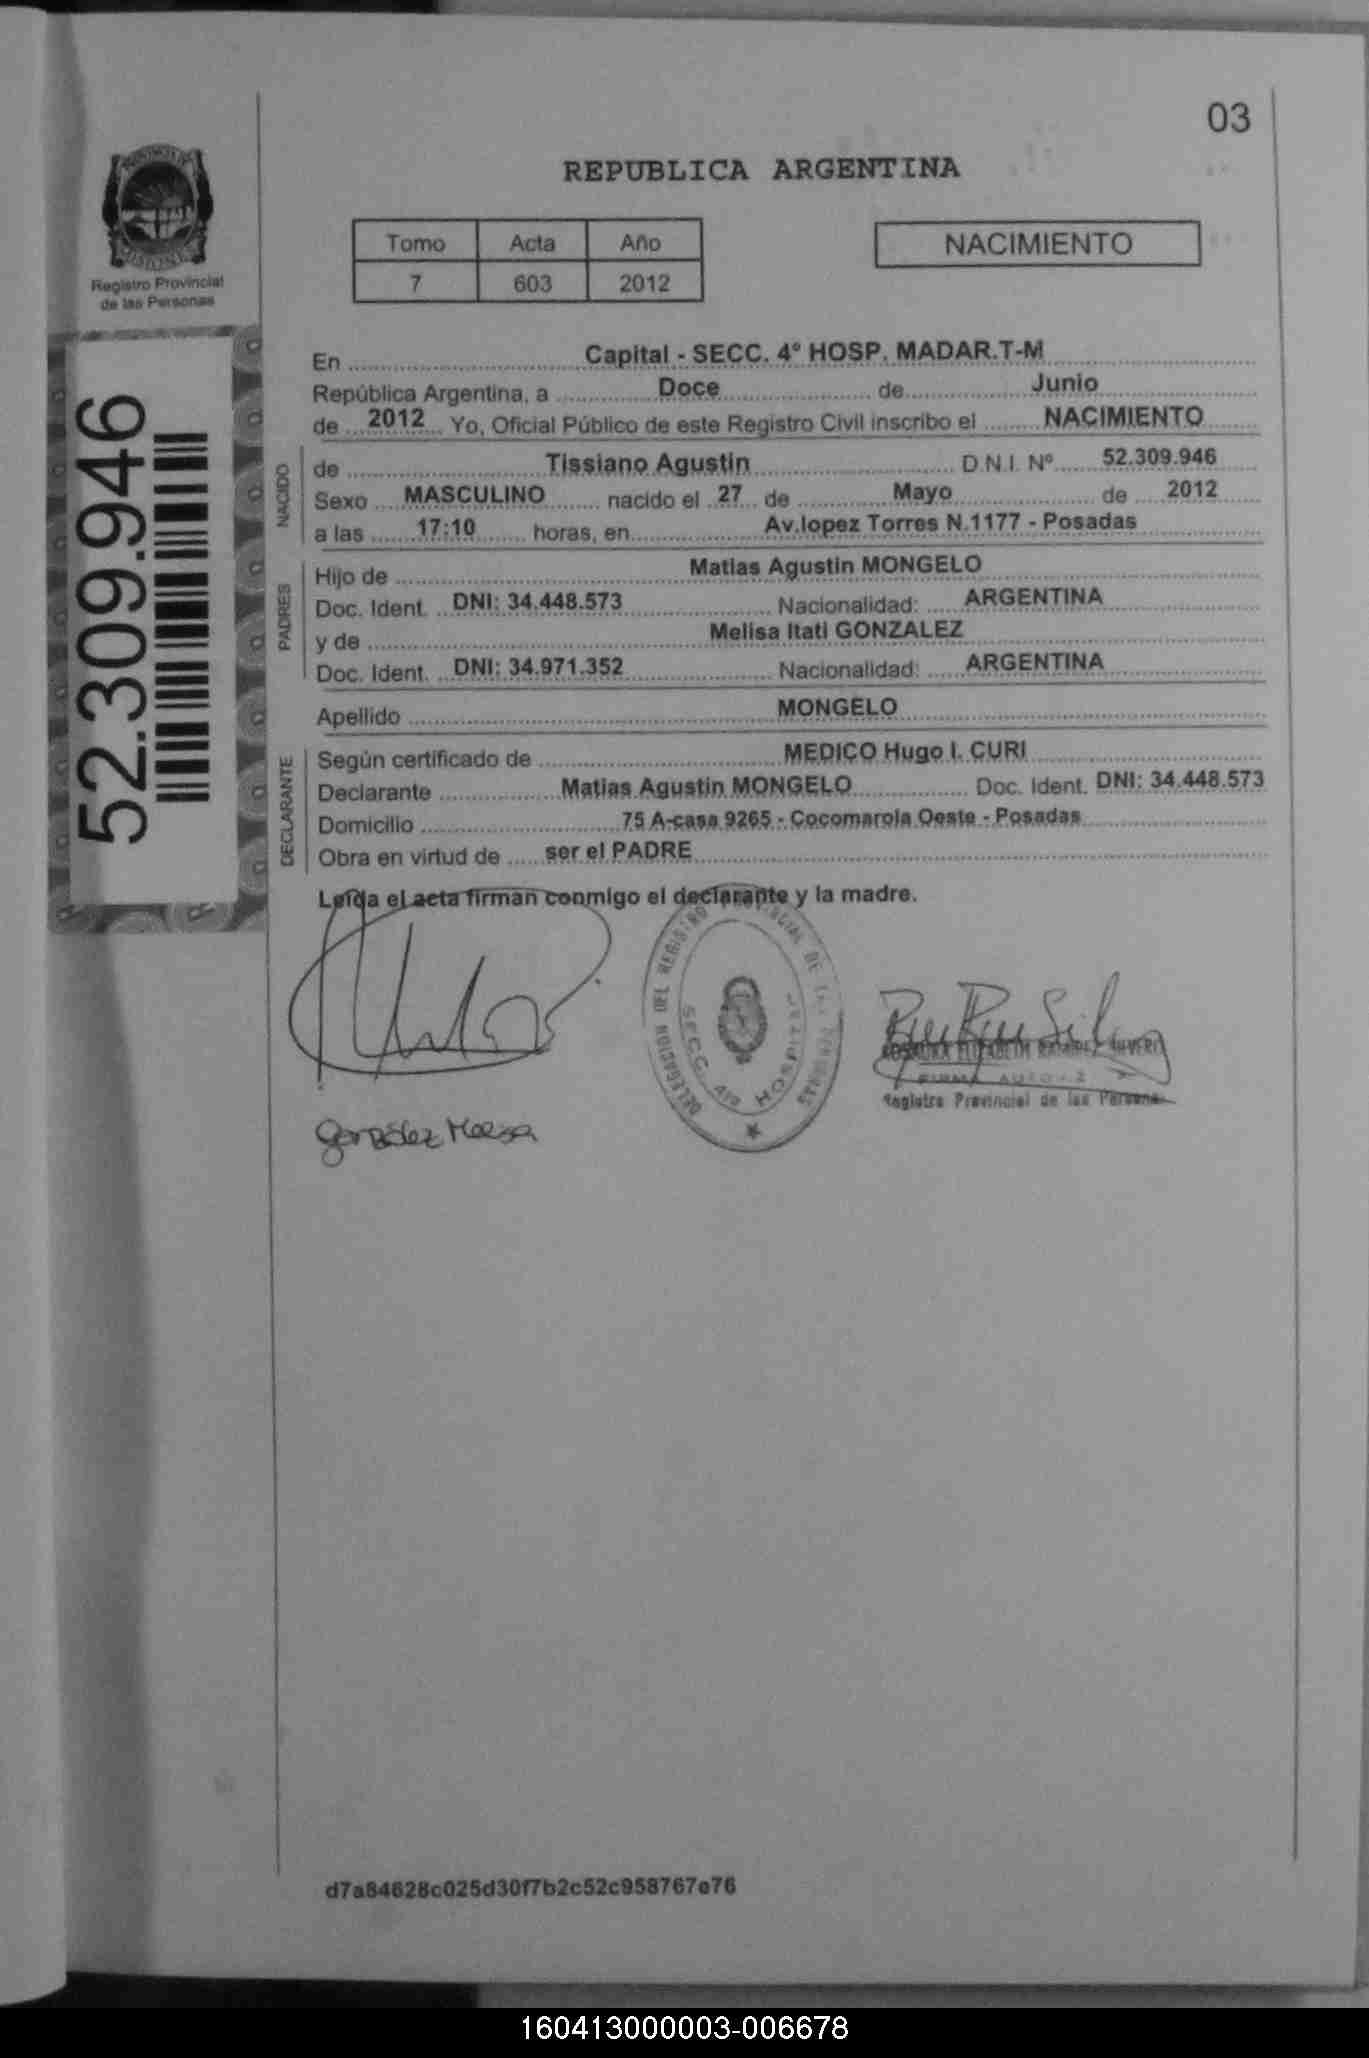 03
REPUBLICA ARGENTINA
Registro Provincial
de las Personas
Tomo Acta Año
7 603 2012
NACIMIENTO
52.309.946
En Capital - SECC. 4° HOSP. MADAR.T-M
República Argentina, a Doce de Junio
de 2012 Yo, Oficial Público de este Registro Civil inscribo el NACIMIENTO
NACIDO
de Tissiano Agustin D.N.I. Nº 52.309.946
Sexo MASCULINO nacido el 27 de Mayo de 2012
a las 17:10 horas, en Av.lopez Torres N.1177 - Posadas
PADRES
Hijo de Matias Agustin MONGELO
Doc. Ident. DNI: 34.448.573 Nacionalidad: ARGENTINA
y de Melisa Itati GONZALEZ
Doc. Ident. DNI: 34.971.352 Nacionalidad: ARGENTINA
Apellido MONGELO
DECLARANTE
Según certificado de MEDICO Hugo I. CURI
Declarante Matias Agustin MONGELO Doc. Ident. DNI: 34.448.573
Domicilio 75 A-casa 9265 - Cocomarola Oeste - Posadas
Obra en virtud de ser el PADRE
Leída el acta firman conmigo el declarante y la madre.
DELEGACION DEL REGISTRO PROVINCIAL DE LAS PERSONAS
SECC. 4ta HOSPITAL
Registro Provincial de las Personas
González
d7a84628c025d30f7b2c52c958767e76
160413000003-006678